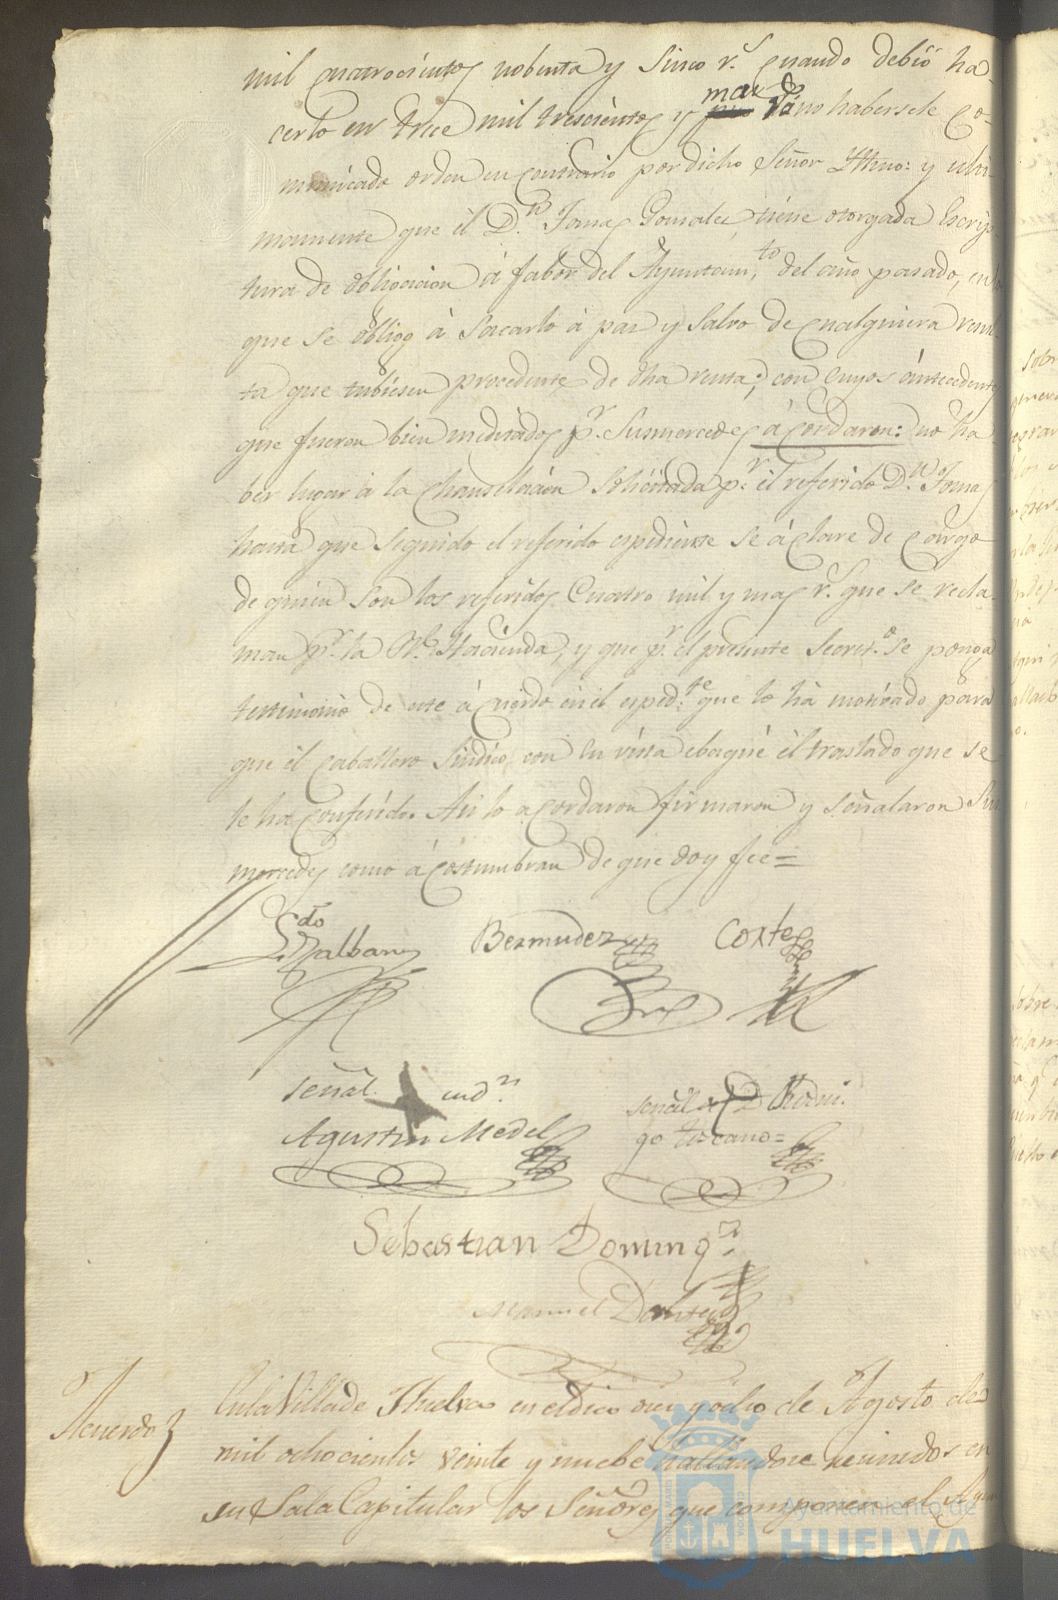 mil cuatrocientos nobenta y sinco r.s cuando debió ha
cerlo en trece mil trescientos y mas no habersele co-
municado orden en contrario por dicho Señor Yltmo: y ulti-
mamente que él D.n Tomas Gonzalez, tiene otorgada Escrip-
tura de obligacion á fabor del Ayuntam.to del año pasado, en
que se obligó á sacarlo á paz y salvo de cualquiera resul-
ta que tubiesen procedente de dha renta; con cuyos ántecedentes
que fueron bien meditados p.r Susmercedes ácordaron: no ha
ber lugar á la Chanselacion solicitada p.r él referido D.n Tomas
hasta que seguido el referido espediente se áclare de cargo
de quien son los referidos Cuatro mil y mas r.s que se recla-
man p.r la R.l Hacienda, y que p.r el presente Secret.o se ponga
testimonio de este ácuerdo en él esped.te que lo há motivado para
que él Caballero Sindico con su vista ebaqúe él traslado que se
le ha conferido. Asi lo acordaron firmaron y señalaron Sus
mercedes como ácostumbran de que doy fee=
Ldo
Malbar Bermudez Cortes
señal. ind.n
Agustin Medel
señal de D Rodri
go Liscano=
Sebastian Doming.z
Manuel
Acuerdo
En la Villa de Huelva en el dia diez y ocho de Agosto de
mil ochocientos veinte y nuebe hallandose reunidos en
su Sala Capitular los Señores que componen el Ayun
Ayuntamiento de
HUELVA